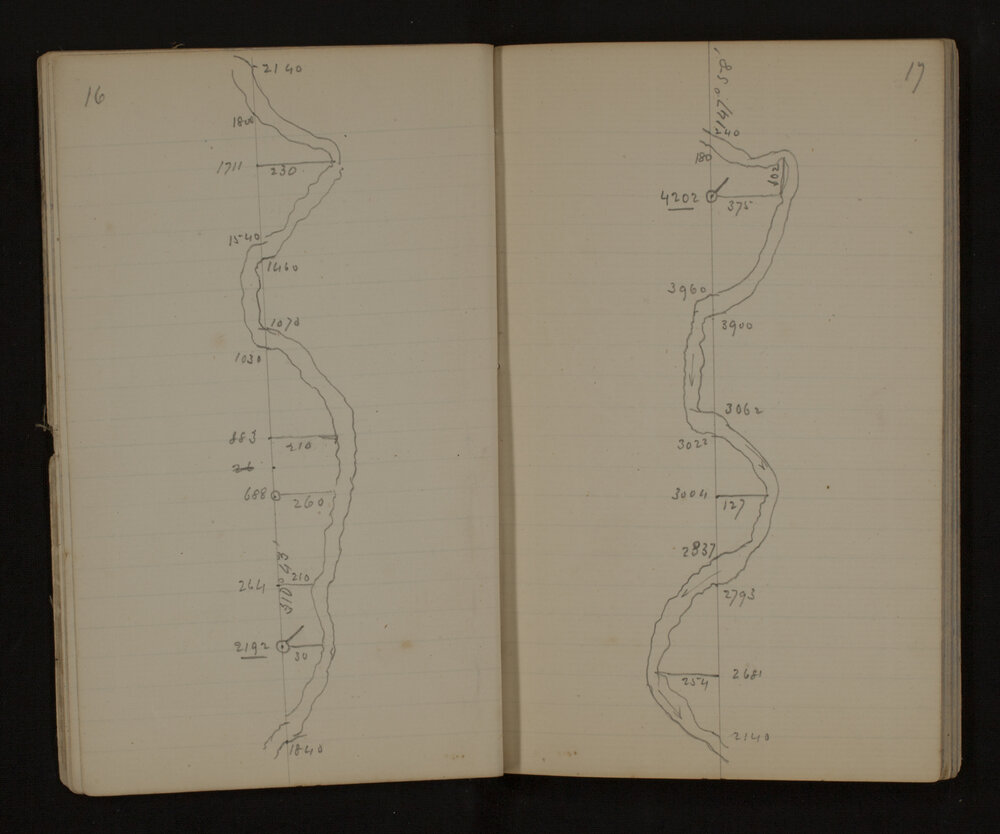 16
2140
1800
1711
230
1540
1460
1070
1030
883
210
688
260
264
210
2192
30
1840
17
240
180
102
4202
375
3960
3900
3062
3022
3004
127
2837
2793
2681
254
2140